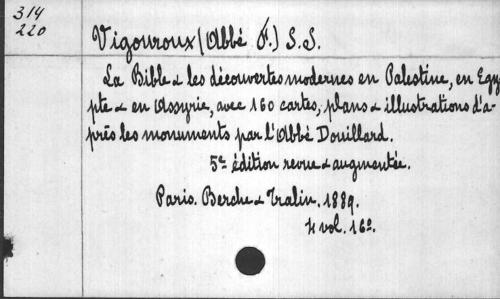 314
220
Vigouroux (Abbé F.) S.S.
La Bible & les découvertes modernes en Palestine, en Egy
pte & en Assyrie, avec 160 cartes, plans & illustrations d'a-
près les monuments par l'Abbé Douillard.
5e édition revue & augmentée.
Paris. Berche & Tralin. 1889.
4 vol. 16o.